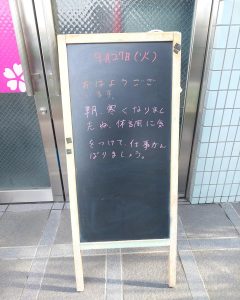 9月27日(火)
おはようござ
います
朝、寒くなりまし
たね、体調に気
をつけて、仕事がん
ばりましょう。